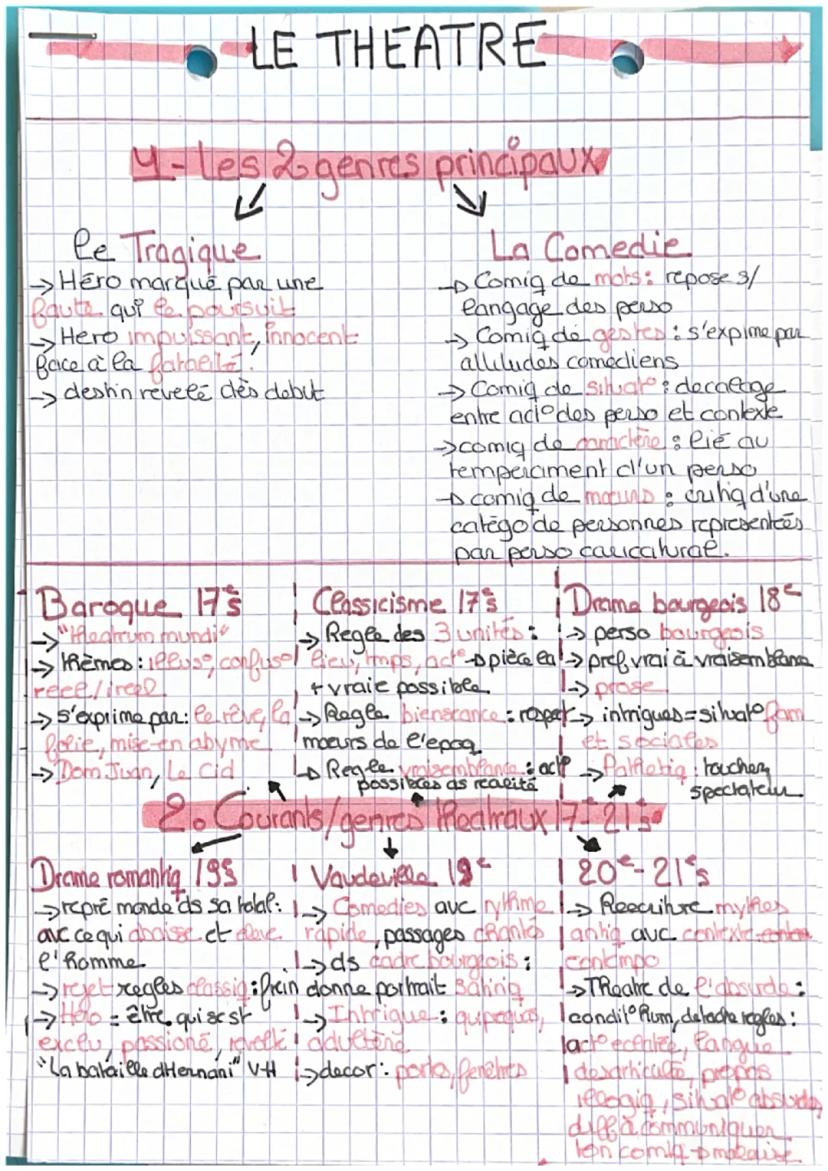 LE THEATRE
1-Les 2 genres principaux
Le Tragique
→ Héro marqué par une
faute qui le poursuit
→ Hero impuissant, innocent
face à la fatalité.
→ destin revelé dès debut
La Comedie
→ Comiq de mots : repose s/
langage des perso
→ Comiq de gestes : s'expime par
attitudes comediens
→ Comiq de situat° : decalage
entre act° des perso et contexte
→ comiq de caractère : lié au
temperament d'un perso
→ comiq de mœurs : critiq d'une
catégo de personnes representées
par perso caricatural.
Baroque 17e s
→ "theatrum mundi"
→ thèmes : illus°, confus°
reel/ireel
→ s'exprime par : le rêve, la
folie, mise-en abyme
→ Dom Juan, Le Cid
Classicisme 17e s
→ Regle des 3 unités :
lieu, tmps, act° → pièce la
+ vraie possible
→ Regle bienseance : respect
mœurs de l'epoq
→ Regle vraisemblance : act°
possibles ds realité
Drame bourgeois 18e
→ perso bourgeois
→ pref vrai à vraisemblance
→ prose
→ intrigues = situat° fam
et sociales
→ Pathetiq : toucher
spectateur
2. Courants/genres theatraux 17-21e s
Drame romantiq 19s
→ repré monde ds sa total :
avc ce qui abaisse et eleve
l'homme
→ rejet regles classiq : frein
→ Héro = être qui se st
exclu, passioné, revolté
"La bataille d'Hernani" V-H
Vaudeville 19e
→ Comedies avc rythme
rapide, passages chantés
→ ds cadre bourgeois :
donne portrait satiriq
→ Intrigue : quiproquos,
adultère
→ decor : portes, fenêtres
20e-21e s
→ Reecriture mythes
antiq avc contexte
contempo
→ Theatre de l'absurde :
condit° hum, detache regles :
act° eclatée, langue
desarticulée, propos
illogiq, situat° absurdes
diff à communiquer
ton comiq → malaise